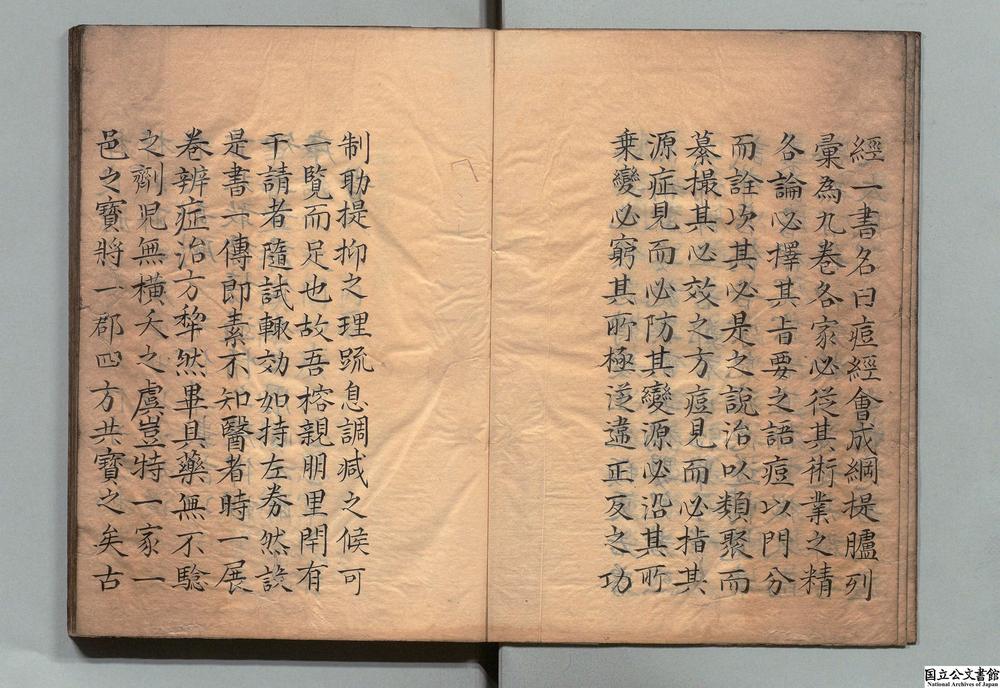 經一書名曰痘經會成綱提臚列
彙為九卷各家必從其術業之精
各論必擇其旨要之語痘以門分
而詮次其必是之說治以類聚而
纂撮其必效之方痘見而必指其
源症見而必防其變源必沿其所
乗變必窮其所極逆違正反之功
制助提抑之理䟽息調減之候可
一覧而足也故吾榕親朋里閈有
干請者隨試輙効如持左券然設
是書一傳即素不知醫者時一展
卷辨症治方犂然畢具藥無不騐
之劑児無橫夭之虞豈特一家一
邑之寶將一郡四方共寶之矣古
国立公文書館
National Archives of Japan